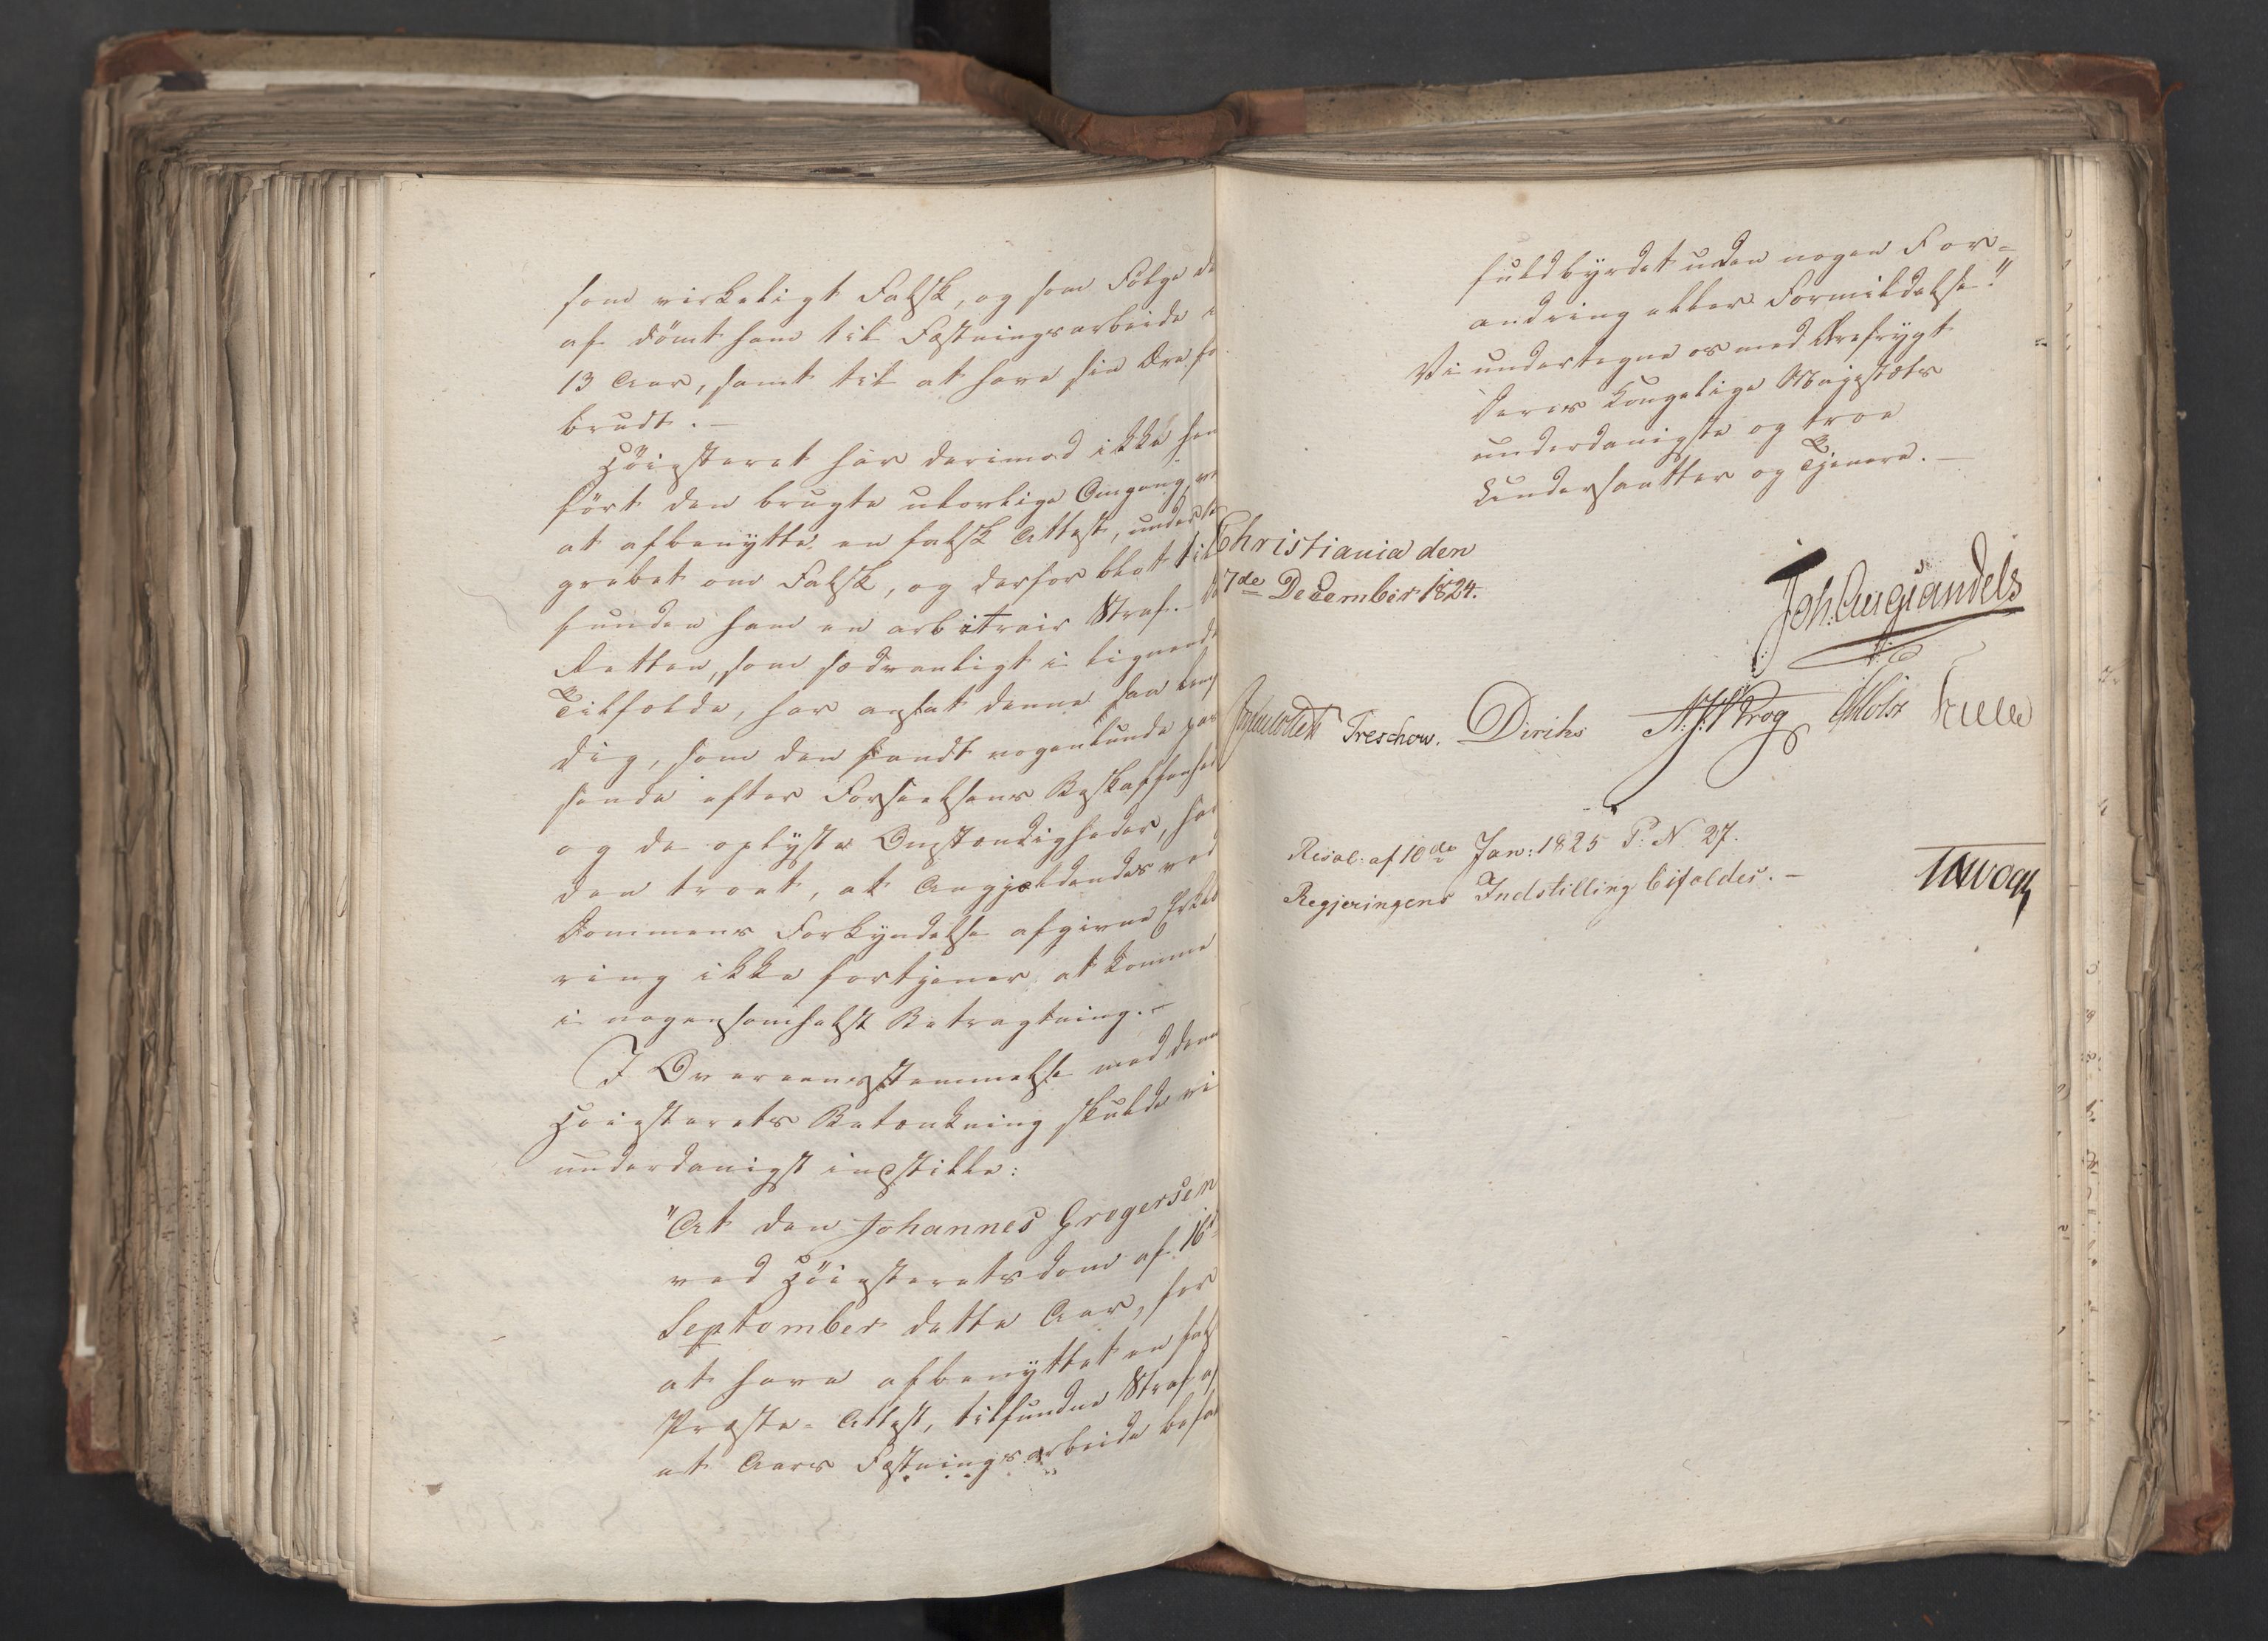 som virkeligt Falsk, og som Følge de
af dömt ham til Fæstningsarbeide i
13 Aar, samt til at have sin Ære for
brudt. —
Höiesteret har derimod ikke hen
fört den brugte ulovlige Omgang, ved
at afbenÿtte en falsk Attest, under Be
grebet om Falsk, og derfor blot til
funden ham en arbitrair Straf. —
Retten, som sædvanligt i lignende
Tilfælde, har ansat denne saa
dig, som den fandt nogenlunde pas
sende efter Forseelsens Beskaffenhed
og de oplÿste Omstændigheder, har
den troet, at Angjældendes ved
Dommens Forkÿndelse afgivne Erklæ
ring ikke fortjener at komme
i nogensomhelst Betragtning. —
I Overeensstemmelse med denne
Höiesterets Betænkning skulde vi
underdanigst indstille:
"At den Johannes Gregersen
ved Höiesteretsdom af 16
September dette Aar, for
at have afbenÿttet en falsk
Præste-Attest, tilfundne Straf af
et Aars Fæstningsarbeide befales
fuldbÿrdet uden nogen For-
andring eller Formildelse."
Vi undertegne os med Ærefrygt
Deres Kongelige Majestæts
underdanigste og troe
Undersaatter og Tjenere. —
Christiania den
7de December 1824.
Joh: Aug: Sandels
Treschow. Diriks A. J. Krog Holst
Resol: af 10de Jan: 1825 P: N. 27.
Regjeringens Indstilling bifaldes. —